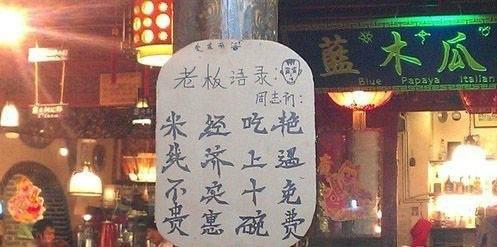 老板语录:
米线不贵
经济实惠
吃上十碗
艳遇免费
藍木瓜
Blue Papaya Italian